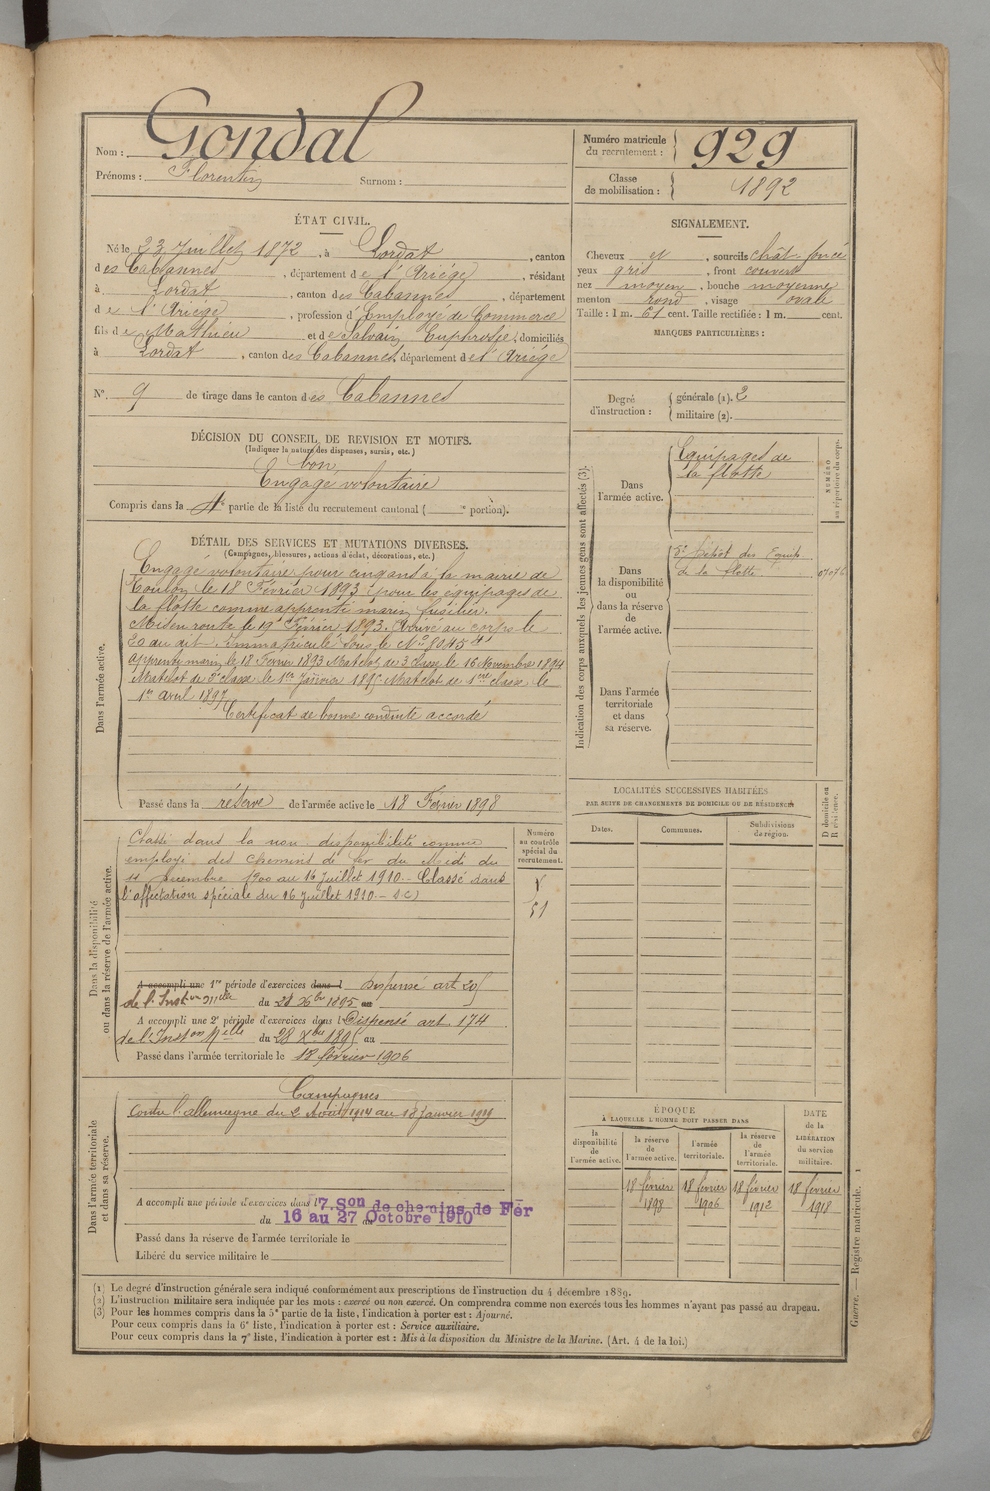 Nom : Gondal
Prénoms : Florentin Surnom :
Numéro matricule du recrutement : 929
Classe de mobilisation : 1892
ÉTAT CIVIL.
Né le 23 Juillet 1872, à Lordat, canton
des Cabannes, département de l'Ariége, résidant
à Lordat, canton des Cabannes, département
de l'Ariége, profession d'Employé de Commerce
fils de Mathieu et de Salvaing Euphrosie, domiciliés
à Lordat, canton des Cabannes, département de l'Ariége
N° 9 de tirage dans le canton des Cabannes
SIGNALEMENT.
Cheveux et, sourcils chât. foncé
yeux gris, front couvert
nez moyen, bouche moyenne
menton rond, visage ovale
Taille : 1 m. 61 cent. Taille rectifiée : 1 m. cent.
MARQUES PARTICULIÈRES :
Degré d'instruction : générale (1). 2
militaire (2).
DÉCISION DU CONSEIL DE REVISION ET MOTIFS.
(Indiquer la nature des dispenses, sursis, etc.)
bon
Engagé volontaire
Compris dans la 4e partie de la liste du recrutement cantonal ( e portion).
DÉTAIL DES SERVICES ET MUTATIONS DIVERSES.
(Campagnes, blessures, actions d'éclat, décorations, etc.)
Dans l'armée active.
Engagé volontaire pour cinq ans à la mairie de
Toulon le 18 Février 1893 pour les équipages de
la flotte comme apprenti marin fusilier.
Mis en route le 19 Février 1893. Arrivé au corps le
20 au dit. Immatriculé sous le No 8045
apprenti marin le 18 Fevrier 1893 Matelot de 3 classe le 16 Novembre 1894
Matelot de 2e classe le 1er Janvier 1895 Matelot de 1ere classe le
1er Avril 1897
Certificat de bonne conduite accordé
Passé dans la réserve de l'armée active le 18 Février 1898
Indication des corps auxquels les jeunes gens sont affectés (3).
NUMÉRO au répertoire du corps.
Dans l'armée active.
Equipages de
la flotte
Dans la disponibilité ou dans la réserve de l'armée active.
5e Dépôt des Equip.
de la flotte
Dans l'armée territoriale et dans sa réserve.
LOCALITÉS SUCCESSIVES HABITÉES
PAR SUITE DE CHANGEMENTS DE DOMICILE OU DE RÉSIDENCE
Dates. Communes. Subdivisions de région. D domicile ou R résidence.
Dans la disponibilité ou dans la réserve de l'armée active.
Numéro au contrôle spécial du recrutement.
Classé dans la non disponibilité comme
employé des chemins de fer du Midi du
11 décembre 1900 au 16 juillet 1910 - Classé dans
l'affectation spéciale du 16 juillet 1910 -
51
A accompli une 1re période d'exercices dans l Dispensé art 205
de l'Instion Mlle du 28 Xbre 1895 au
A accompli une 2e période d'exercices dans l Dispensé art. 174
de l'Instion Melle du 28 Xbre 1895 au
Passé dans l'armée territoriale le 18 février 1906
Dans l'armée territoriale et dans sa réserve.
Campagnes
Contre l'allemagne du 2 Août 1914 au 18 Janvier 1919
A accompli une période d'exercices dans l' 7. Son de chemins de Fer
du 16 au 27 Octobre 1910
Passé dans la réserve de l'armée territoriale le
Libéré du service militaire le
ÉPOQUE
À LAQUELLE L'HOMME DOIT PASSER DANS
la disponibilité de l'armée active.
la réserve de l'armée active.
l'armée territoriale.
la réserve de l'armée territoriale.
DATE de la LIBÉRATION du service militaire.
18 février 1898
18 février 1906
18 février 1912
18 février 1918
Guerre. — Registre matricule. 1
(1) Le degré d'instruction générale sera indiqué conformément aux prescriptions de l'instruction du 4 décembre 1889.
(2) L'instruction militaire sera indiquée par les mots : exercé ou non exercé. On comprendra comme non exercés tous les hommes n'ayant pas passé au drapeau.
(3) Pour les hommes compris dans la 5e partie de la liste, l'indication à porter est : Ajourné.
Pour ceux compris dans la 6e liste, l'indication à porter est : Service auxiliaire.
Pour ceux compris dans la 7e liste, l'indication à porter est : Mis à la disposition du Ministre de la Marine. (Art. 4 de la loi.)